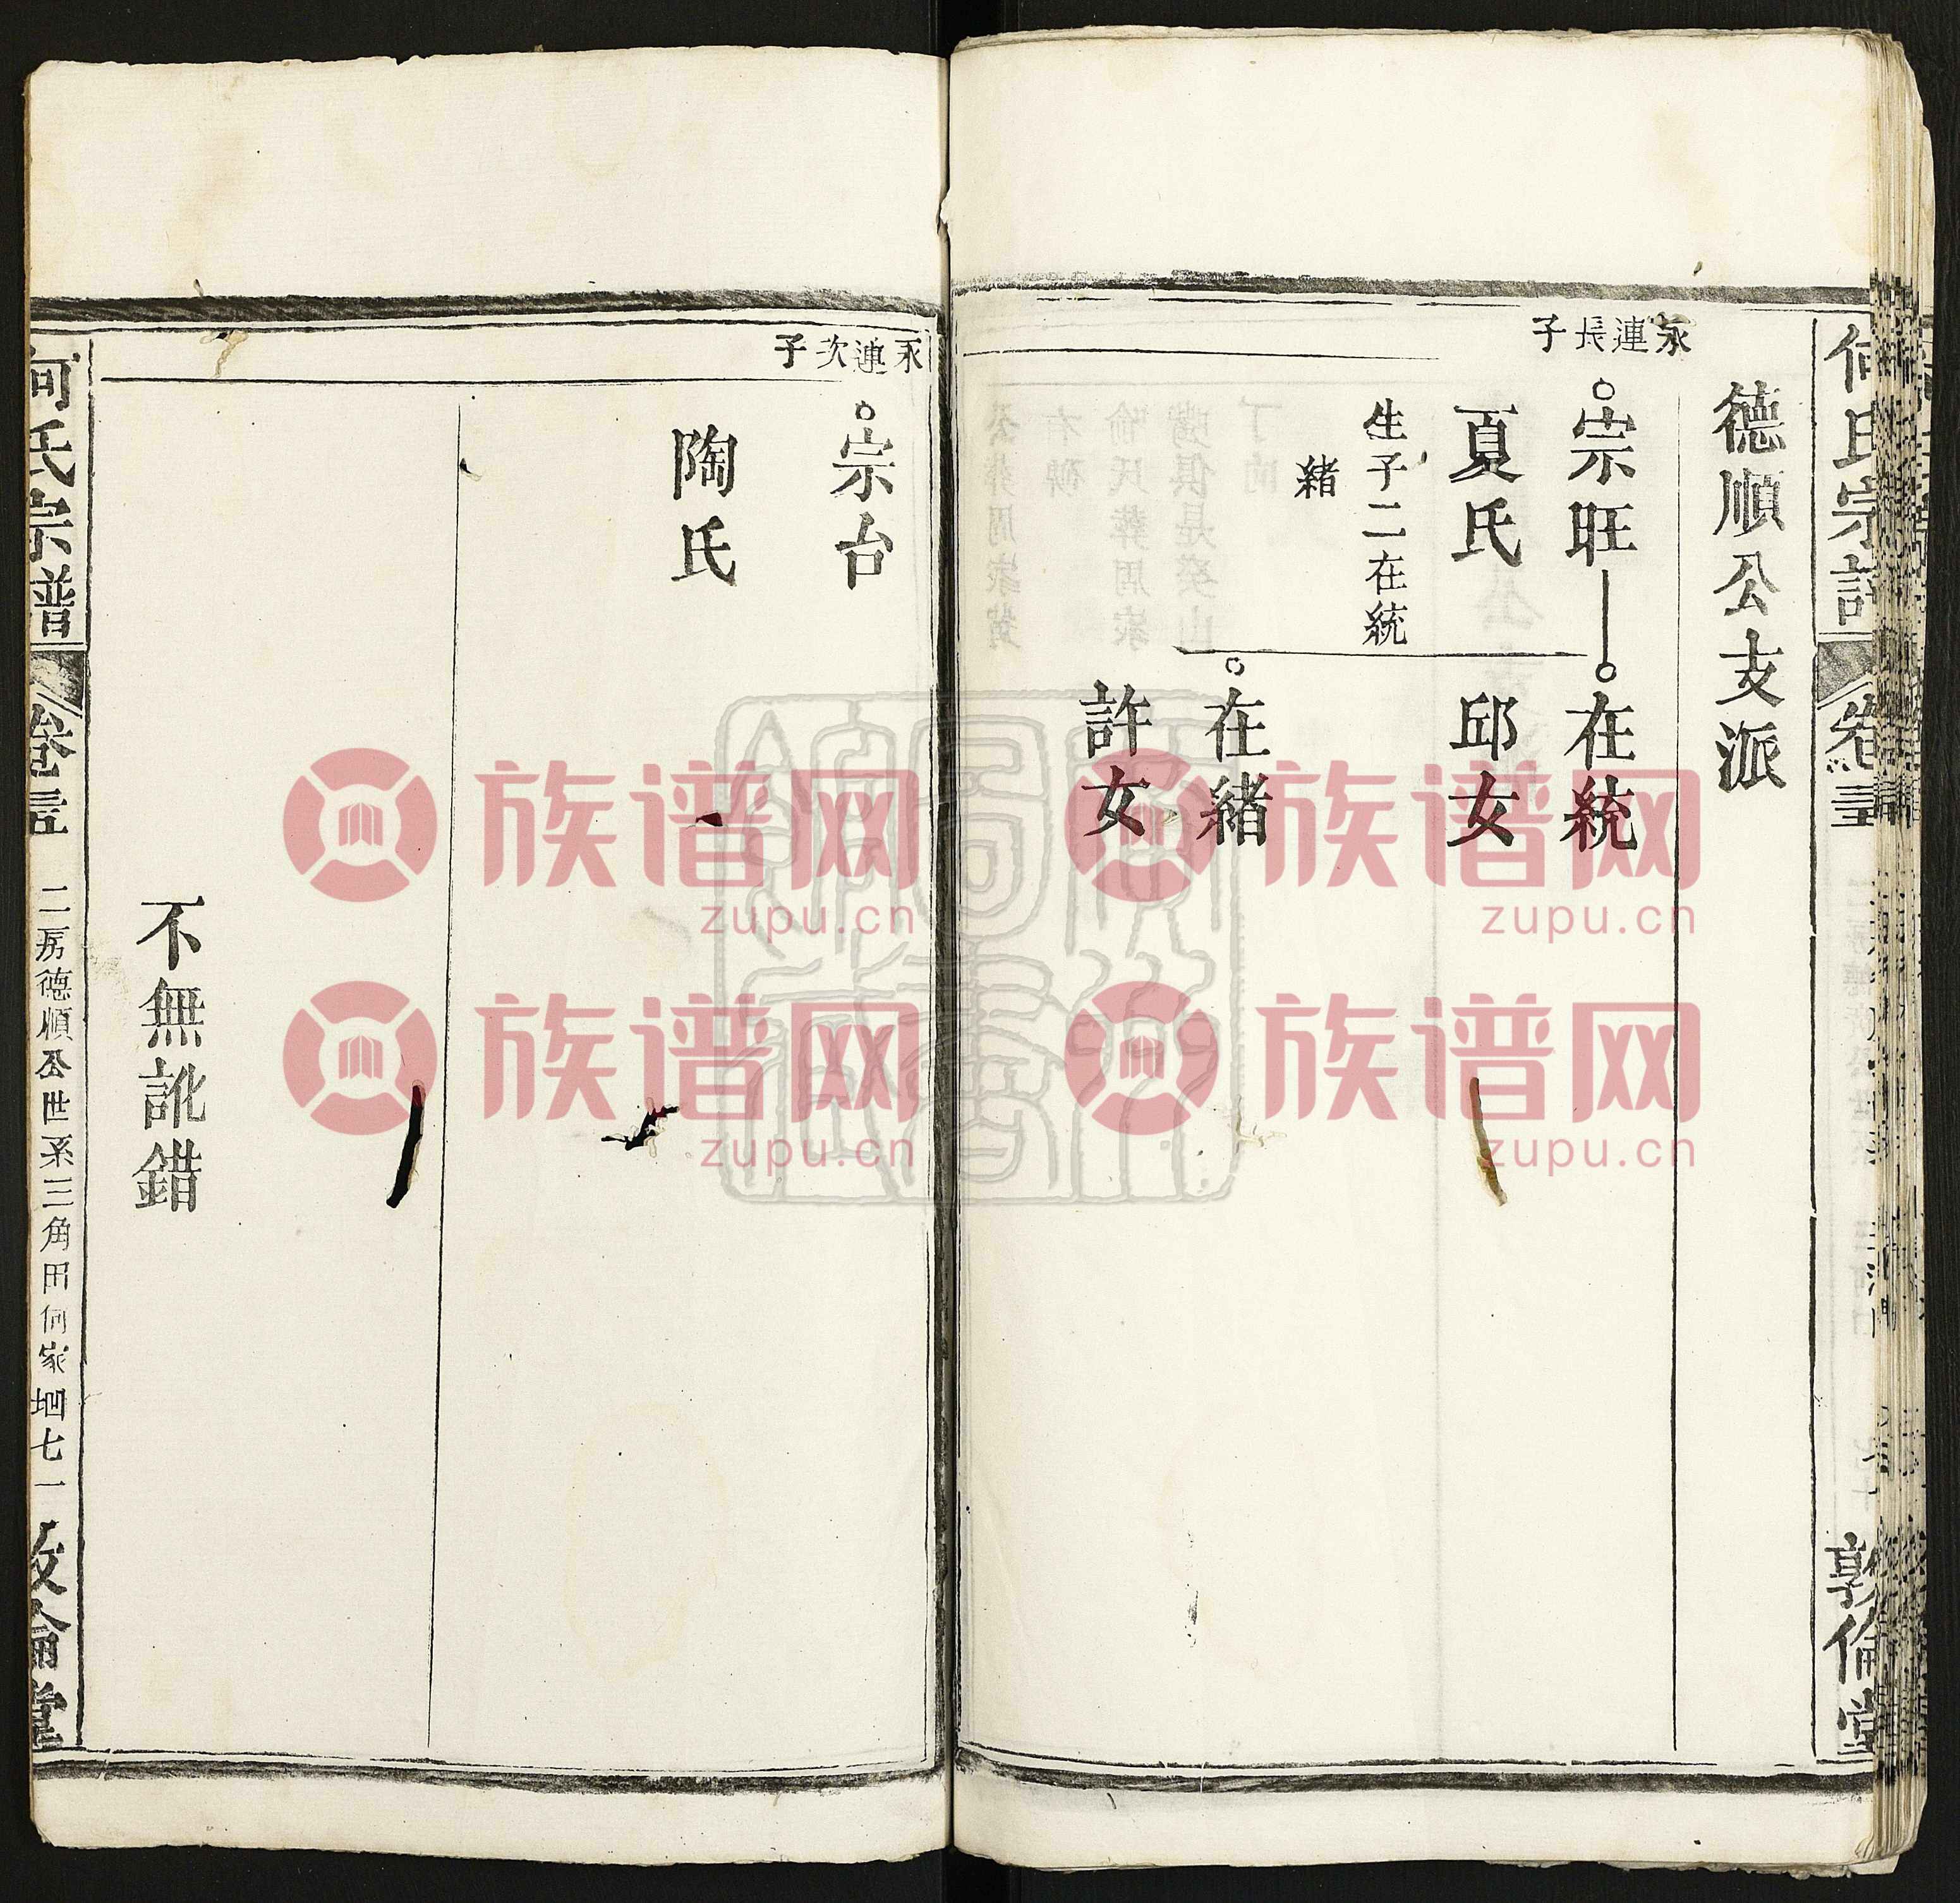 何氏宗譜
敦倫堂
德順公支派
永連長子
宗旺
夏氏
生子二在統
緒
在統
邱女
在緒
許女
永連次子
宗台
陶氏
不無訛錯
何氏宗譜
二房德順公世系三角田何家
七一
敦倫堂
族谱网
zupu.cn
族谱网
zupu.cn
族谱网
zupu.cn
族谱网
zupu.cn